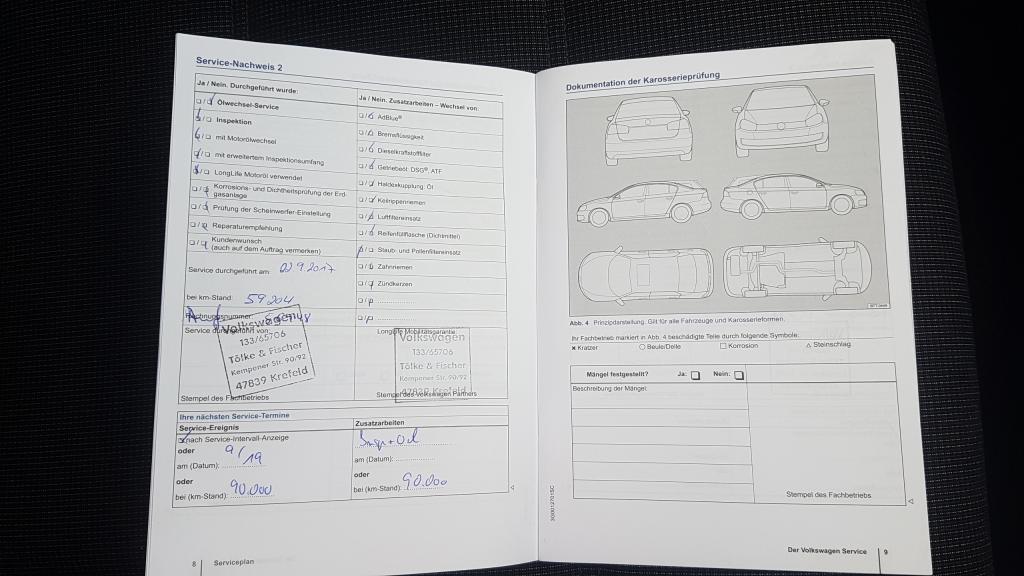 Service-Nachweis 2
Ja / Nein. Durchgeführt wurde:
Ölwechsel-Service
Inspektion
mit Motorölwechsel
mit erweitertem Inspektionsumfang
LongLife Motoröl verwendet
Korrosions- und Dichtheitsprüfung der Erd-
gasanlage
Prüfung der Scheinwerfer-Einstellung
Reparaturempfehlung
Kundenwunsch
(auch auf dem Auftrag vermerken)
Service durchgeführt am: 02.9.2017
bei km-Stand: 59204
Service durchgeführt von:
Volkswagen
133/65706
Tölke & Fischer
Kempener Str. 90/92
47839 Krefeld
Stempel des Fachbetriebs
Ja / Nein. Zusatzarbeiten – Wechsel von:
AdBlue®
Bremsflüssigkeit
Dieselkraftstofffilter
Getriebeöl: DSG®, ATF
Haldexkupplung: Öl
Keilrippenriemen
Luftfiltereinsatz
Reifenfüllflasche (Dichtmittel)
Staub- und Pollenfiltereinsatz
Zahnriemen
Zündkerzen
LongLife Mobilitätsgarantie:
Volkswagen
133/65706
Tölke & Fischer
Kempener Str. 90/92
47839 Krefeld
Stempel des Volkswagen Partners
Ihre nächsten Service-Termine
Service-Ereignis
nach Service-Intervall-Anzeige
oder
am (Datum): 9/19
oder
bei (km-Stand): 90.000
Zusatzarbeiten
Insp + Öl
am (Datum):
oder
bei (km-Stand): 90.000
8 Serviceplan
Dokumentation der Karosserieprüfung
Abb. 4 Prinzipdarstellung. Gilt für alle Fahrzeuge und Karosserieformen.
Ihr Fachbetrieb markiert in Abb. 4 beschädigte Teile durch folgende Symbole:
× Kratzer ○ Beule/Delle □ Korrosion △ Steinschlag
Mängel festgestellt? Ja: Nein:
Beschreibung der Mängel:
Stempel des Fachbetriebs
Der Volkswagen Service 9